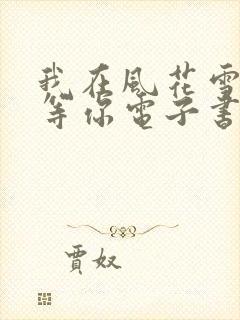 我在風花雪
等你電子書
賈奴